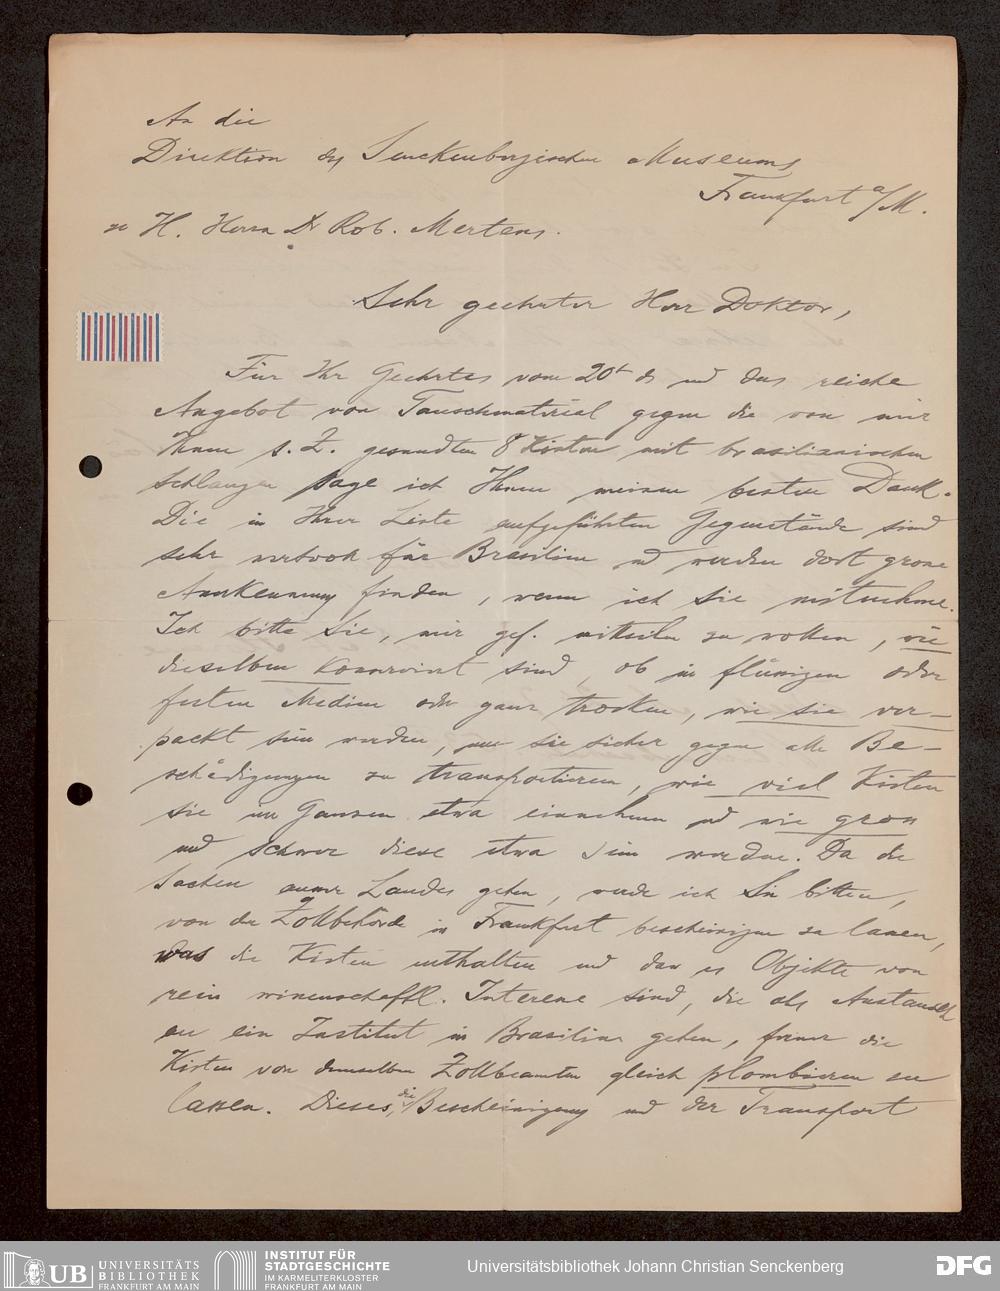 An die
Direktion des Senckenbergischen Museums
Frankfurt a/M.
zu H. Herrn Dr Rob. Mertens.
Sehr geehrter Herr Doktor,
Für Ihr Geehrtes vom 20t ds und das reiche
Angebot von Tauschmaterial gegen die von mir
Ihnen s. Z. gesandten 8 Kisten mit brasilianischen
Schlangen sage ich Ihnen meinen besten Dank.
Die in Ihrer Liste aufgeführten Gegenstände sind
sehr wertvoll für Brasilien und werden dort grosse
Anerkennung finden, wenn ich sie mitnehme.
Ich bitte Sie, mir gef. mitteilen zu wollen, wie
dieselben konserviert sind, ob in flüssigen oder
festen Medien oder ganz trocken, wie sie ver-
packt sein werden, um sie sicher gegen alle Be-
schädigungen zu transportieren, wie viel Kisten
sie im Ganzen etwa einnehmen und wie gross
und schwer diese etwa sein werden. Da die
Sachen ausser Landes gehen, werde ich Sie bitten,
von der Zollbehörde in Frankfurt bescheinigen zu lassen,
was die Kisten enthalten und dass es Objekte von
rein wissenschaftl. Interesse sind, die als Austausch
an ein Institut in Brasilien gehen, ferner die
Kisten von demselben Zollbeamten gleich plombieren zu
lassen. Dieses, die Bescheinigung und der Transport
UB UNIVERSITÄTS
BIBLIOTHEK
FRANKFURT AM MAIN
INSTITUT FÜR
STADTGESCHICHTE
IM KARMELITERKLOSTER
FRANKFURT AM MAIN
Universitätsbibliothek Johann Christian Senckenberg
DFG